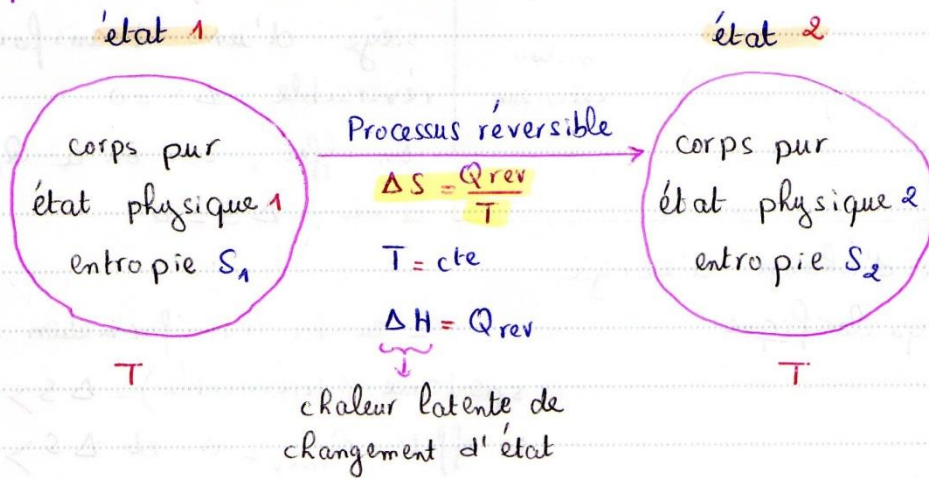 état 1
état 2
corps pur
état physique 1
entropie S₁
T
Processus réversible
ΔS = Qrev / T
T = cte
ΔH = Qrev
chaleur latente de
changement d'état
corps pur
état physique 2
entropie S₂
T